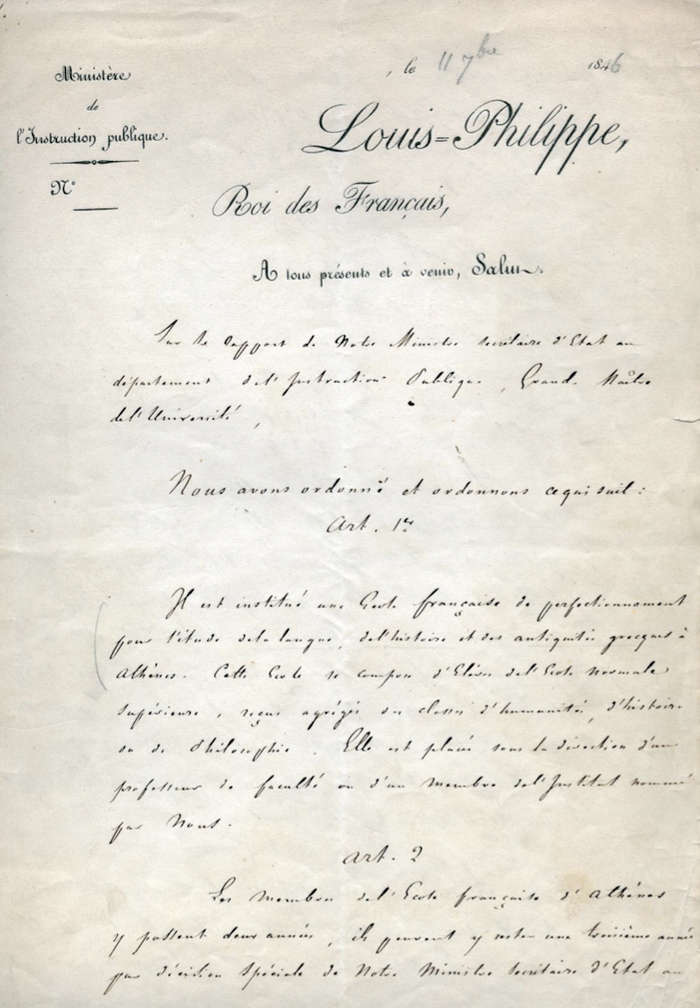 Ministère
de
l'Instruction publique.
N°
, le 11 7bre 1846
Louis=Philippe,
Roi des Français,
A tous présents et à venir, Salut.
Sur le rapport de Notre Ministre Secrétaire d'Etat au
département de l'Instruction Publique, Grand Maître
de l'Université,
Nous avons ordonné et ordonnons ce qui suit :
Art. 1er
Il est institué une Ecole française de perfectionnement
pour l'étude de la langue, de l'histoire et des antiquités grecques à
Athènes. Cette Ecole se compose d'Elèves de l'Ecole normale
Supérieure, reçus agrégés des classes d'humanités, d'histoire
ou de Philosophie. Elle est placée sous la direction d'un
professeur de faculté ou d'un Membre de l'Institut nommé
par Nous.
Art. 2
Les Membres de l'Ecole française d'Athènes
y passent deux années, ils peuvent y rester une troisième année
par décision Spéciale de Notre Ministre Secrétaire d'Etat au